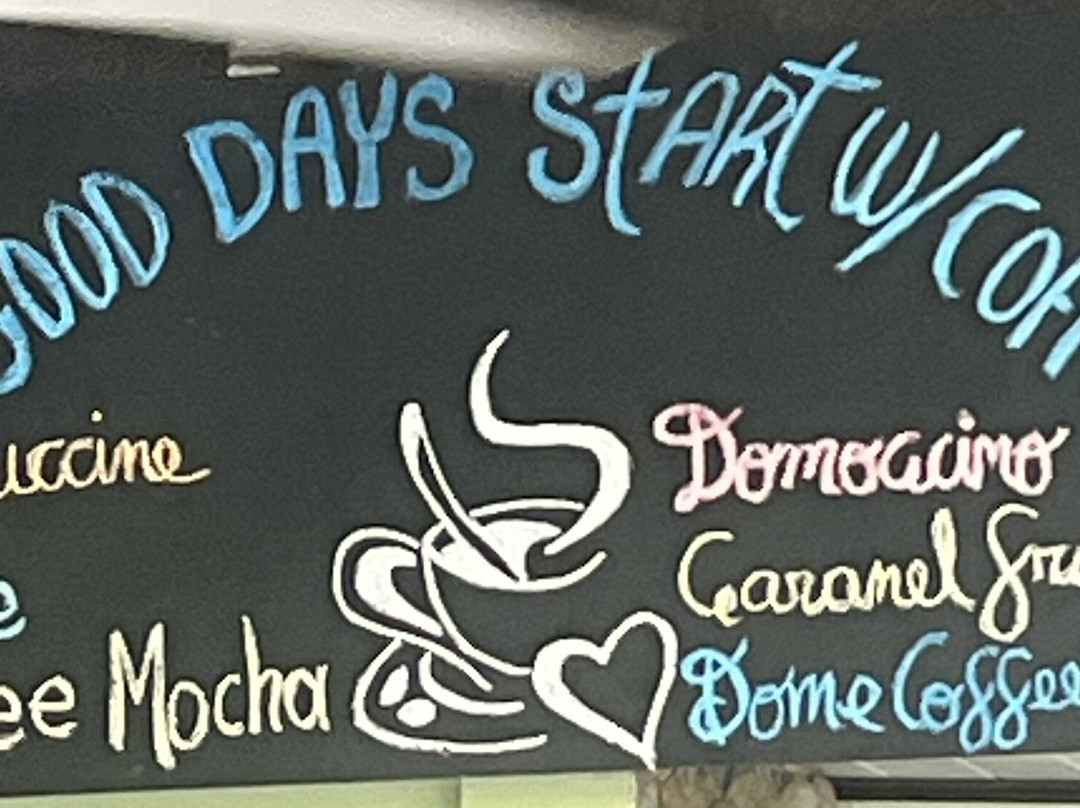 GOOD DAYS START W/ COFF
uccine
e
ee Mocha
Domoccino
Caramel Fra
Dome Coffee